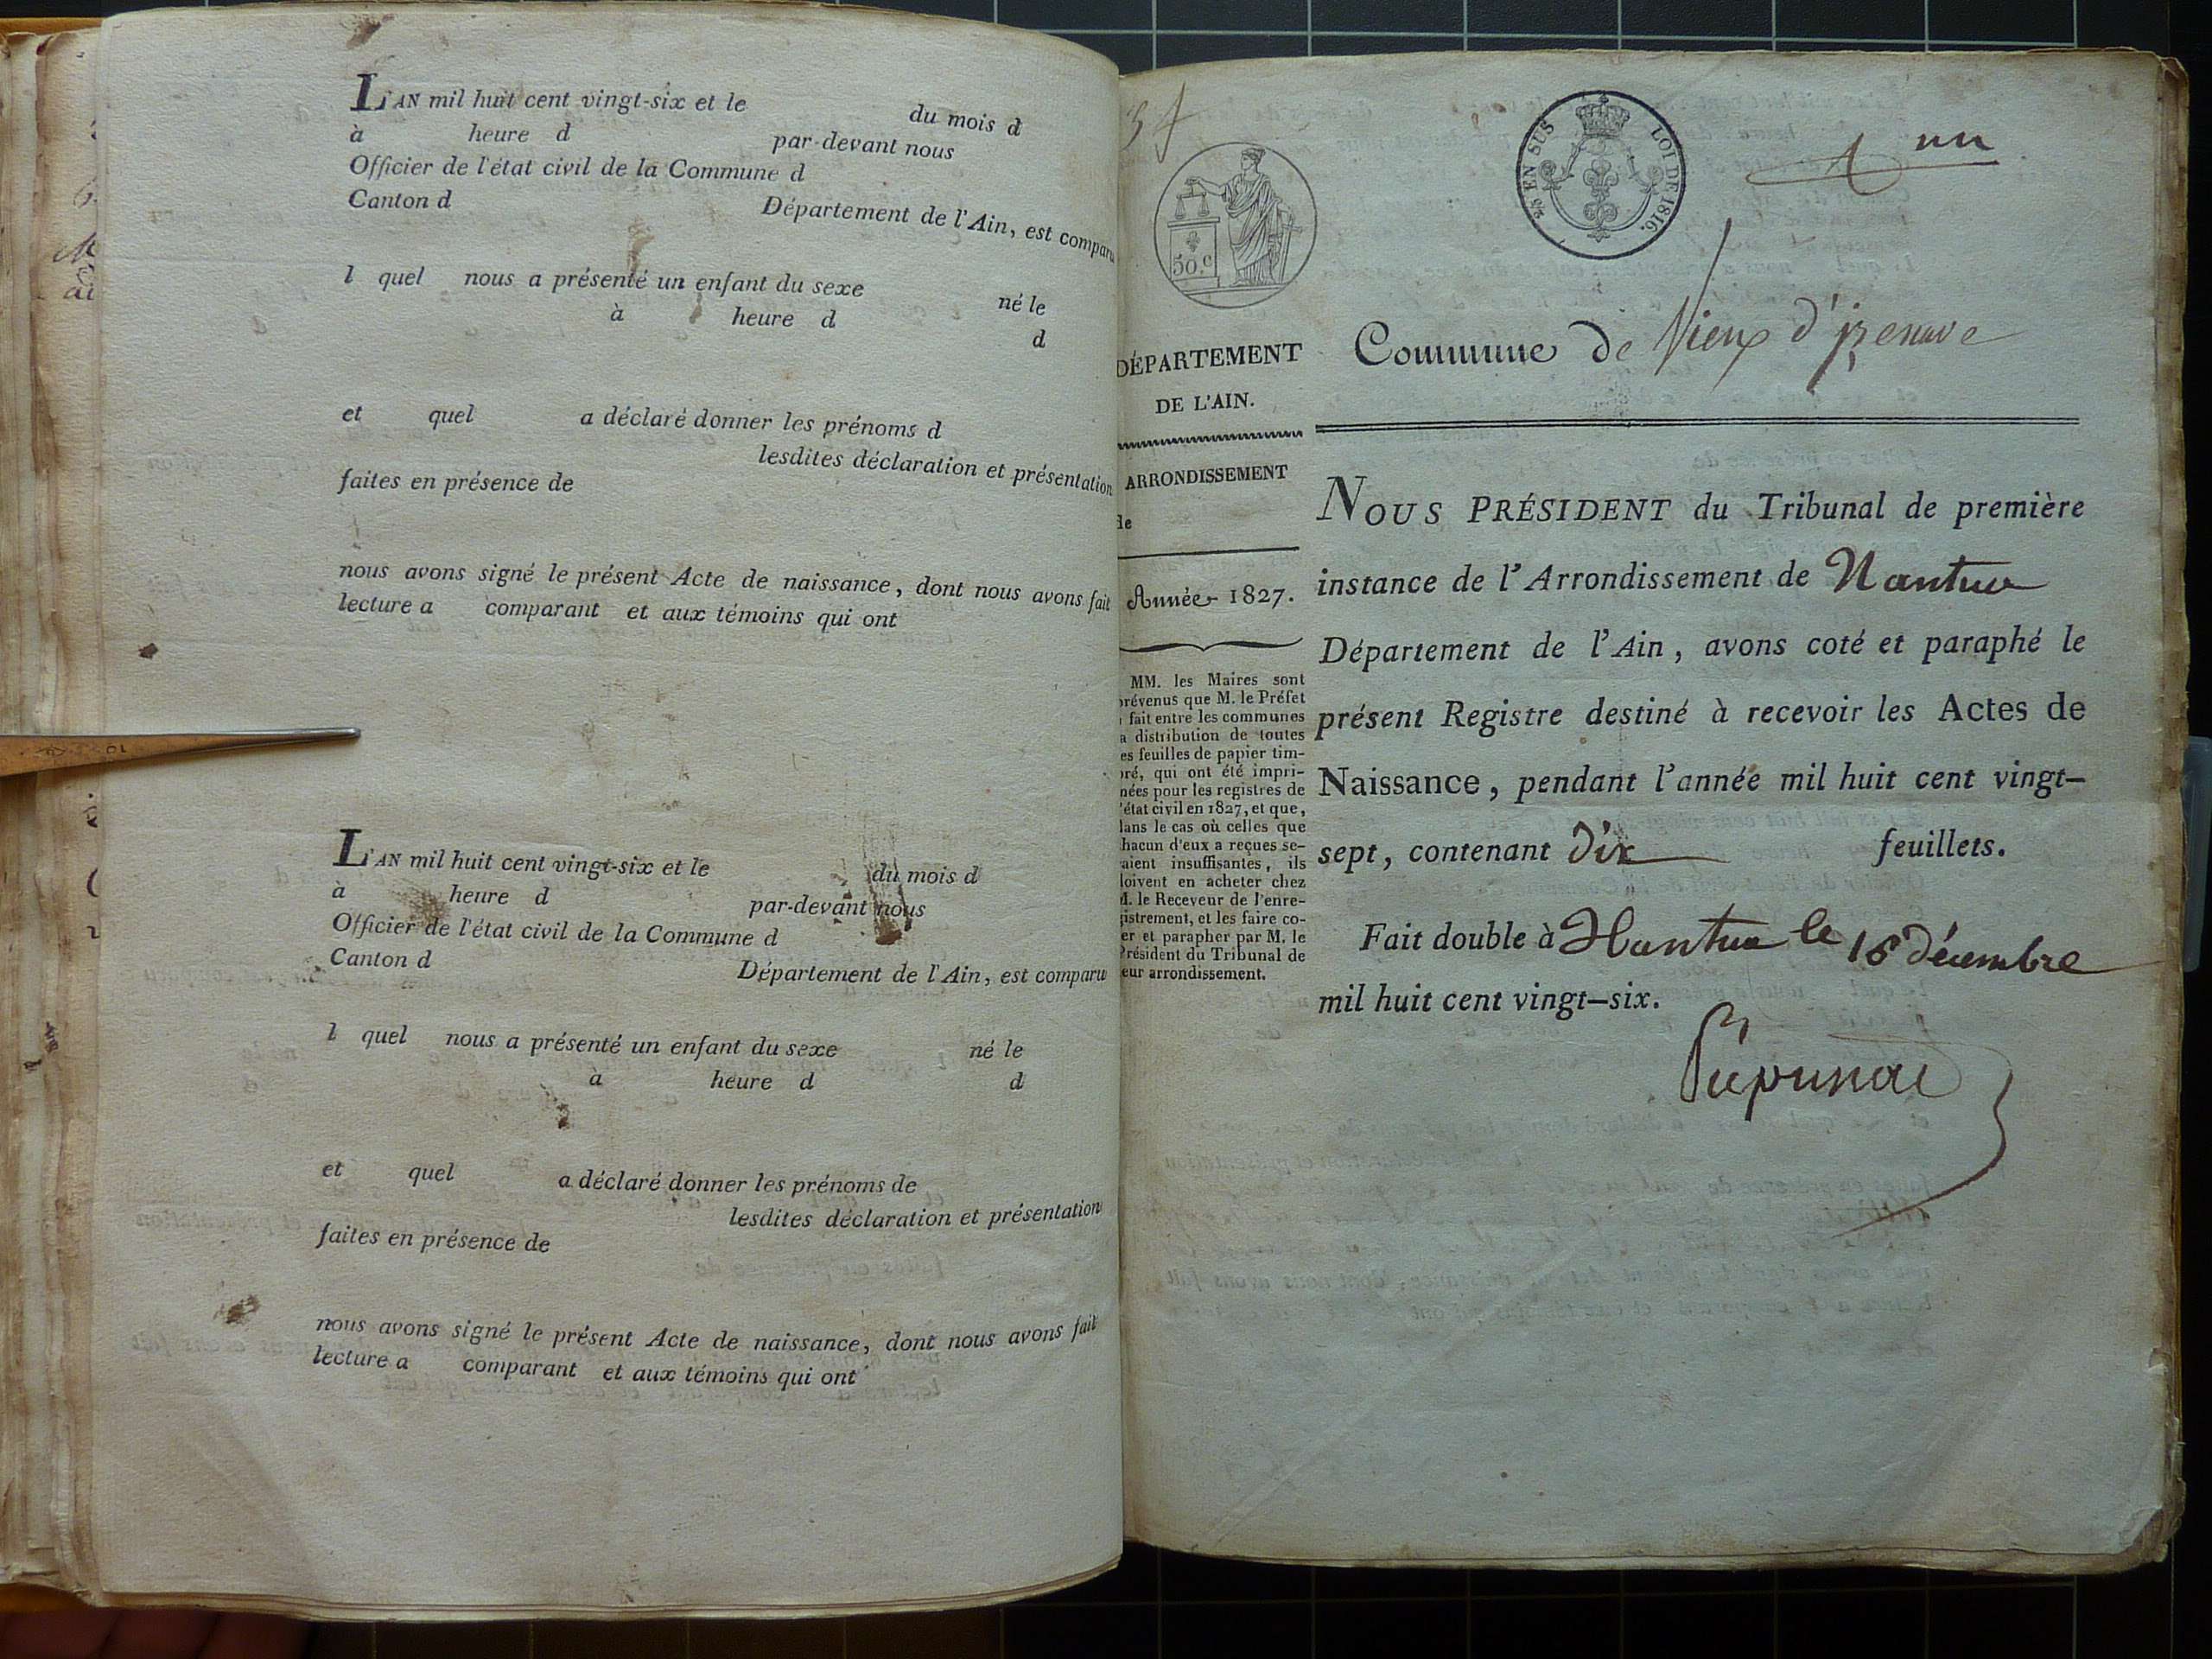 L'AN mil huit cent vingt-six et le du mois d
à heure d par-devant nous
Officier de l'état civil de la Commune d
Canton d Département de l'Ain, est comparu
l quel nous a présenté un enfant du sexe né le
à heure d d
et quel a déclaré donner les prénoms d
lesdites déclaration et présentation
faites en présence de
nous avons signé le présent Acte de naissance, dont nous avons fait
lecture a comparant et aux témoins qui ont
L'AN mil huit cent vingt-six et le du mois d
à heure d par-devant nous
Officier de l'état civil de la Commune d
Canton d Département de l'Ain, est comparu
l quel nous a présenté un enfant du sexe né le
à heure d d
et quel a déclaré donner les prénoms de
lesdites déclaration et présentation
faites en présence de
nous avons signé le présent Acte de naissance, dont nous avons fait
lecture a comparant et aux témoins qui ont
50.c
EN SUS LOI DE 1816.
un
DÉPARTEMENT
DE L'AIN.
ARRONDISSEMENT
de
Année 1827.
MM. les Maires sont
prévenus que M. le Préfet
fait entre les communes
a distribution de toutes
es feuilles de papier tim-
bré, qui ont été impri-
mées pour les registres de
l'état civil en 1827, et que,
dans le cas où celles que
chacun d'eux a reçues se-
raient insuffisantes, ils
doivent en acheter chez
M. le Receveur de l'enre-
gistrement, et les faire co-
er et parapher par M. le
Président du Tribunal de
leur arrondissement.
Commune de Vieux d'izenave
NOUS PRÉSIDENT du Tribunal de première
instance de l'Arrondissement de Nantua
Département de l'Ain, avons coté et paraphé le
présent Registre destiné à recevoir les Actes de
Naissance, pendant l'année mil huit cent vingt-
sept, contenant dix feuillets.
Fait double à Nantua le 16 décembre
mil huit cent vingt-six.